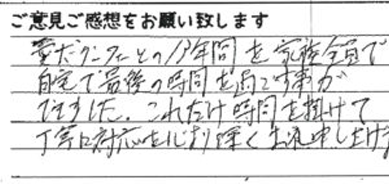 ご意見ご感想をお願い致します
愛犬クーフーとの13年間を家族全員で
自宅で最後の時間を過ごす事が
できました。これだけ時間を掛けて
丁寧に対応を心より深く御礼申し上げ